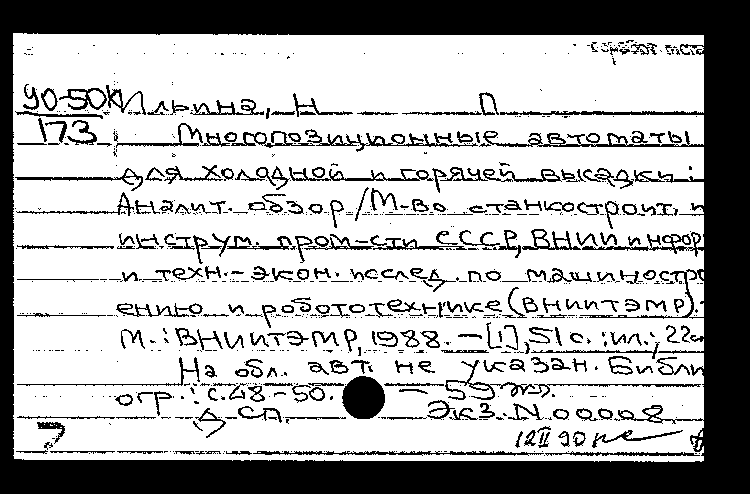 90-50К Ильина, Н П
173 Многопозиционные автоматы
для холодной и горячей высадки :
Аналит. обзор / М-во станкостроит. и
инструм. пром-сти СССР, ВНИИ инфор
и техн.-экон. исслед. по машиностро
ению и робототехнике (ВНИИТЭМР). -
М. : ВНИИТЭМР, 1988. - [1], 51 с. : ил.; 22 см
На обл. авт. не указан. Библи
огр.: с. 48-50. - 59 экз.
Д СП. Экз. N 00008.
12 II 90